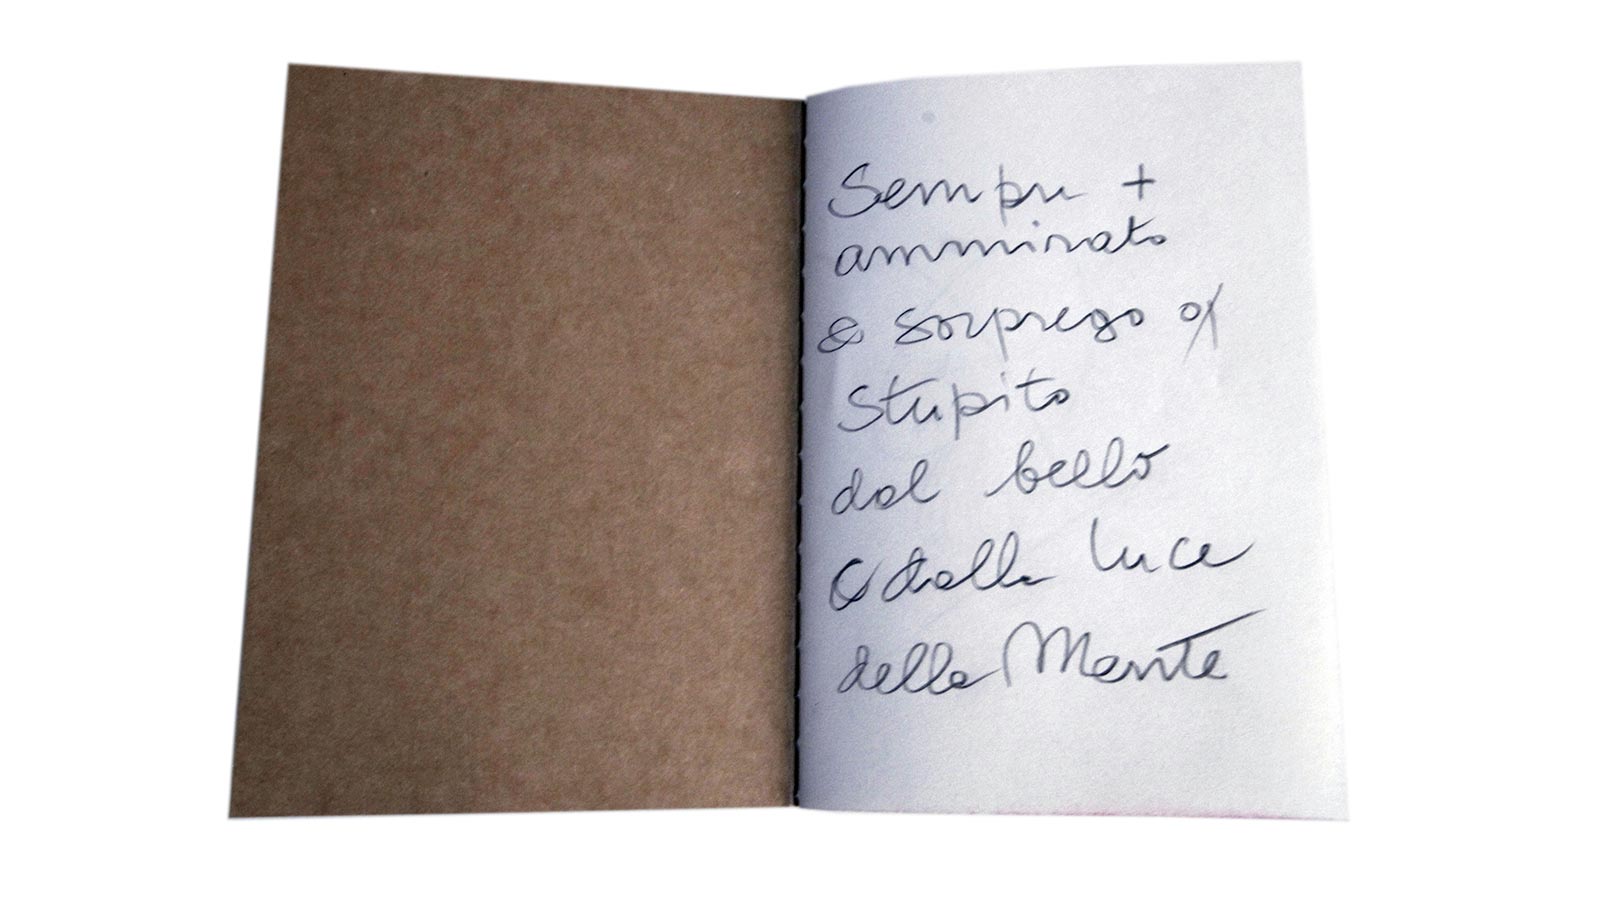 Sempre +
ammirato
e sorpreso
stupito
dal bello
e dalla luce
della Mente